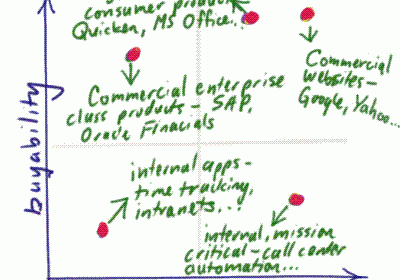 consumer produc
Quicken, MS Office...
Commercial
websites-
Google, Yahoo...
Commercial enterprise
class products - SAP,
Oracle Finacials
buyability
internal apps-
time tracking,
intranets...
internal, mission
critical-call center
automation...